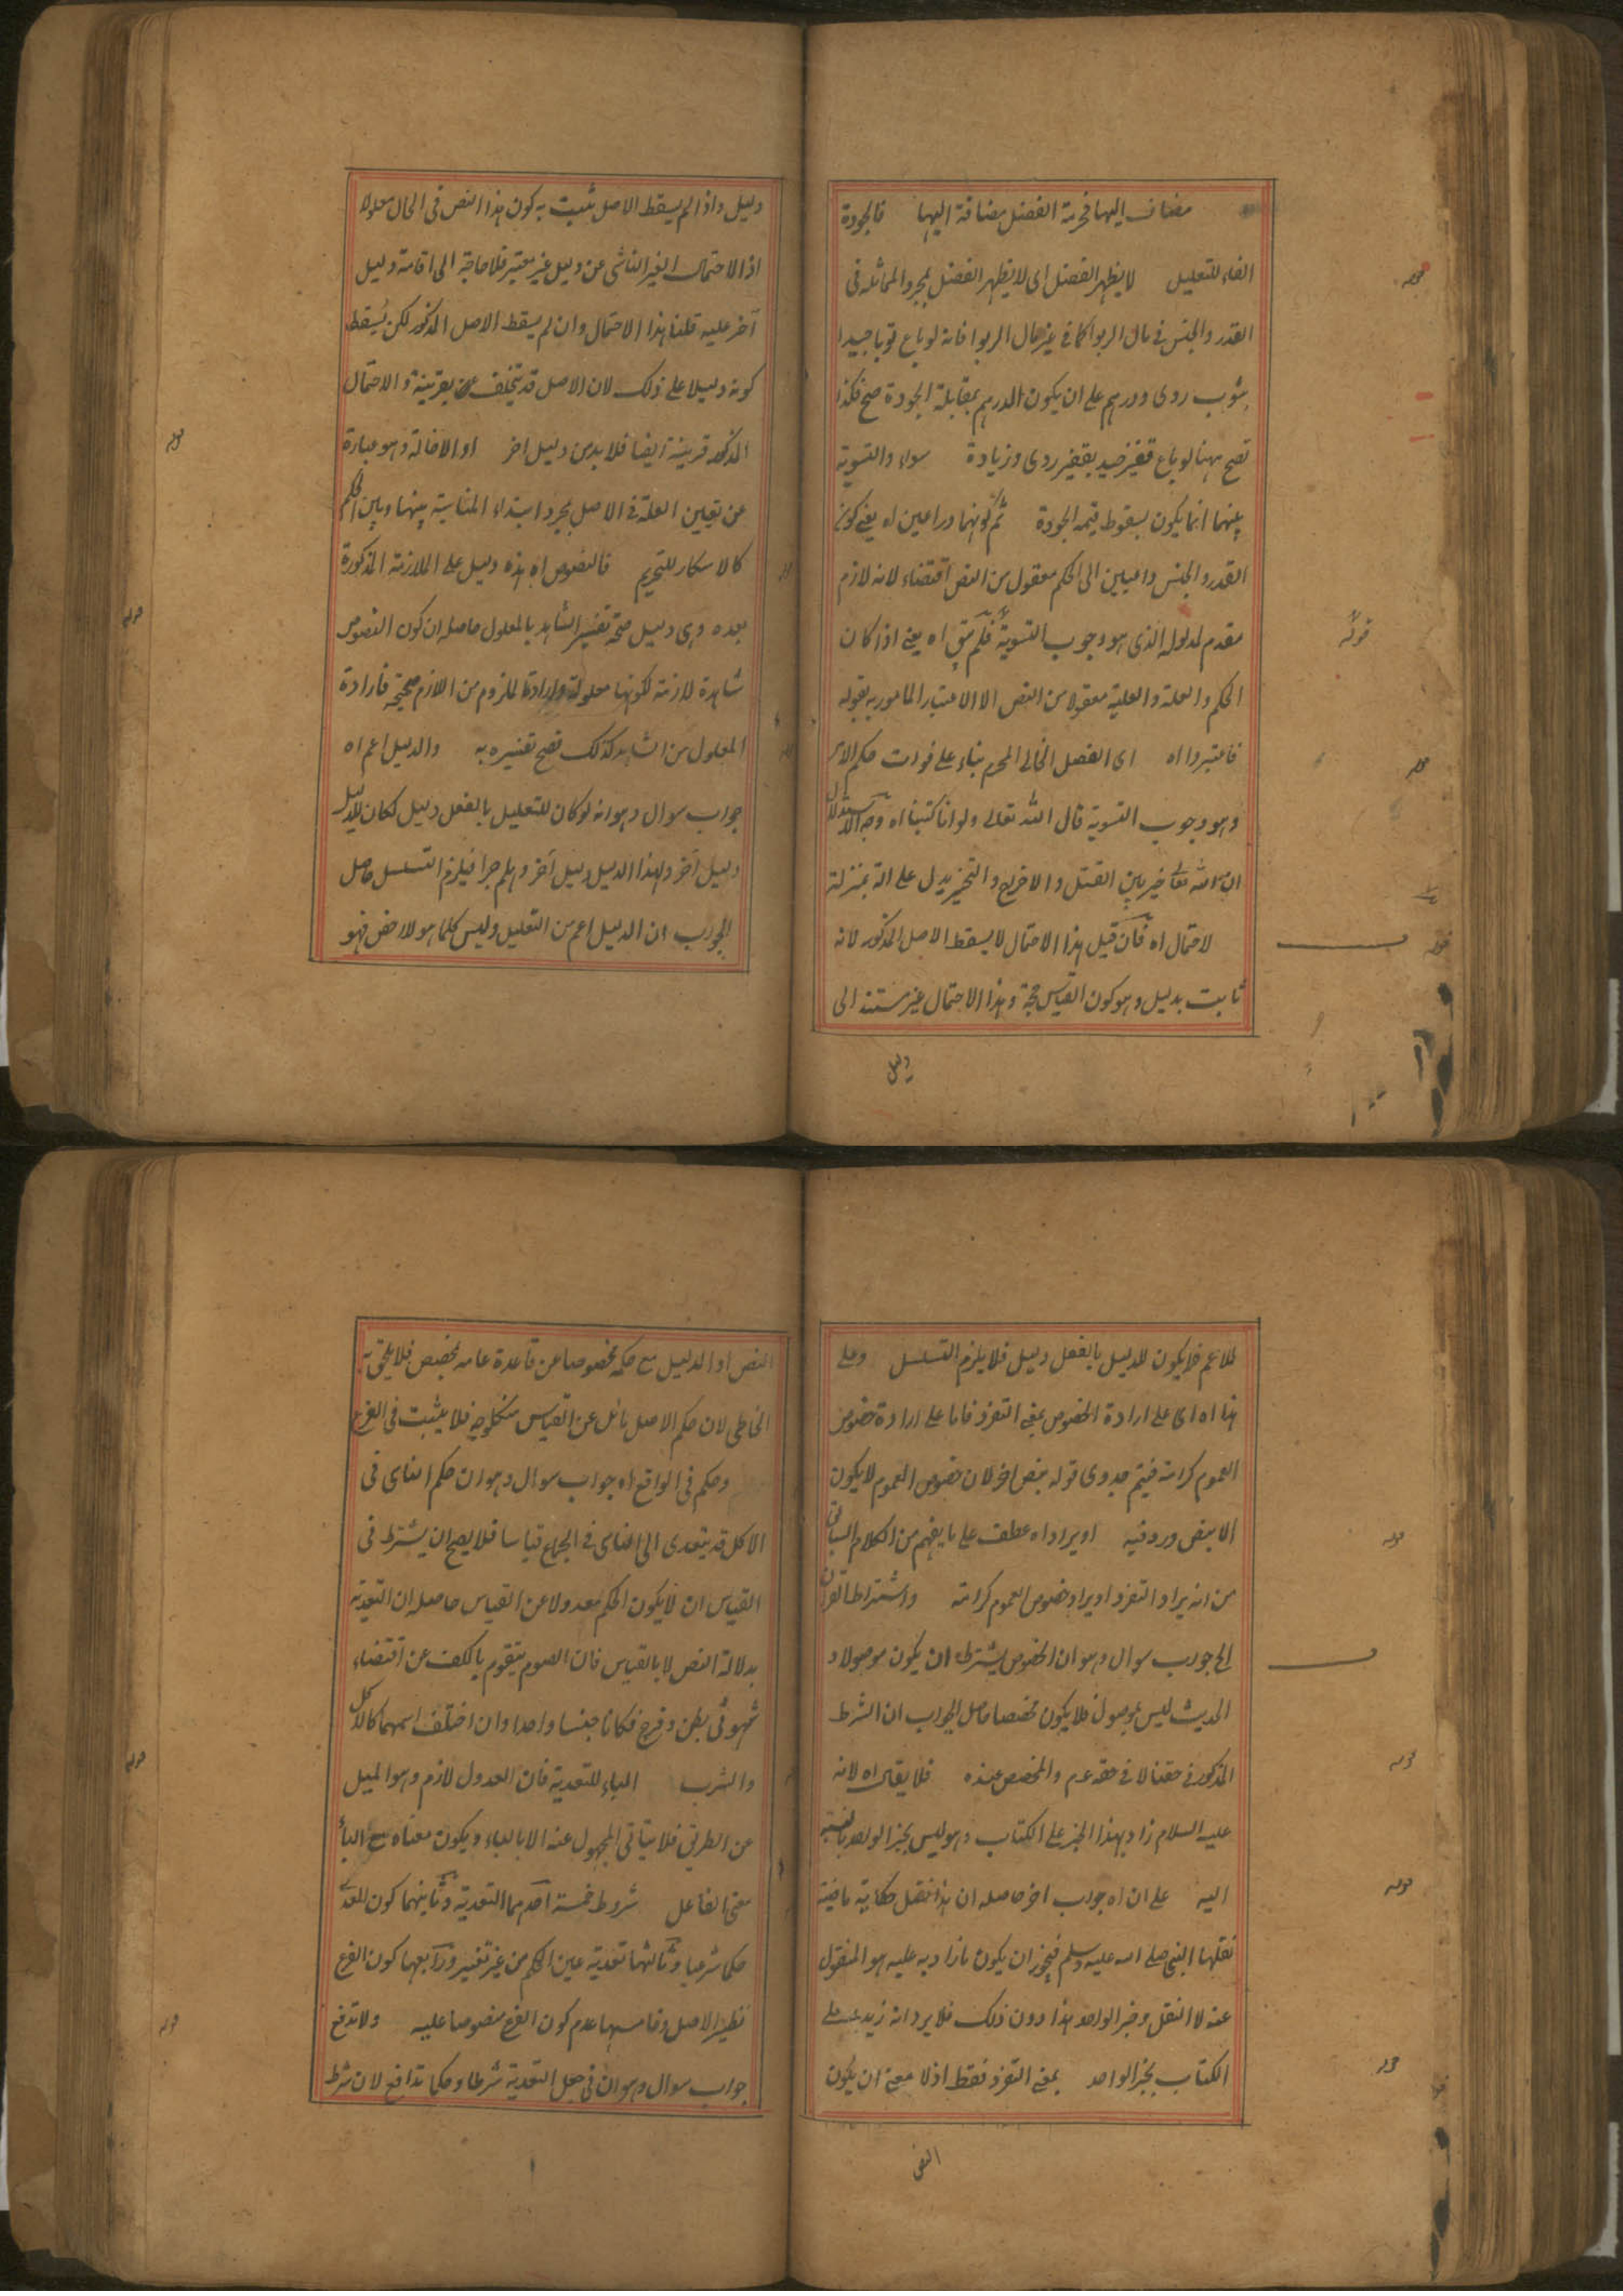 مضاف اليها فحرمة الفضل مضافة اليها فالجودة
الفاء للتعليل لا يظهر الفضل اى لا يظهر الفضل بمجرد المماثلة فى
القدر والجنس فى مال الربوا كما فى غير مال الربوا فانه لو باع ثوبا جيدا
بثوب ردى ودرهم على ان يكون الدرهم بمقابلة الجودة صح فكذا
تصح ههنا لو باع قفيز جيد بقفيز ردى وزيادة سواء والتسوية
بينهما انما يكون بسقوط قيمة الجودة ثم كونهما داعيين اه يعنى كون
القدر والجنس داعيين الى الحكم معقول من النص اقتضاء لانه لازم
مقدم لمدلوله الذى هو وجوب التسوية فلم يبق اه يعنى اذا كان
الحكم والعلة والعلية معقولا من النص الا الاعتبار المامور به بقوله
فاعتبروا اه اى الفضل الخالى المحرم بناء على فوات حكم الامر
وهو وجوب التسوية قال الله تعالى ولو انا كتبنا اه وجه الاستدلال
ان الله تعالى خير بين القتل والاخراج والتخيير يدل على انه بمنزلة
لاحتمال اه فان قيل هذا الاحتمال لا يسقط الاصل المذكور لانه
ثابت بدليل وهو كون القياس حجة وهذا الاحتمال غير مستند الى
دليل
قوله
قوله
قوله
قوله
دليل واذا لم يسقط الاصل يثبت به كون هذا النص فى الحال معلولا
اذ الاحتمال الغير الناشى عن دليل غير معتبر فلا حاجة الى اقامة دليل
آخر عليه قلنا هذا الاحتمال وان لم يسقط الاصل المذكور لكن يسقط
كونه دليلا على ذلك لان الاصل قد يتخلف عنه بقرينة والاحتمال
المذكور قرينة ايضا فلا بد من دليل اخر او الاخالة وهو عبارة
عن تعيين العلة فى الاصل بمجرد ابتداء المناسبة بينها وبين الحكم
كالاسكار للتحريم فالنصوص اه هذه دليل على الملازمة المذكورة
بعده وهى دليل صحة تفسير الشاهد بالمعلول حاصله ان كون النصوص
شاهدة لازمة لكونها معلولة وارادة الملزوم من اللازم صحيحة فارادة
المعلول من الشاهد كذلك تصح تفسيره به والدليل اعم اه
جواب سوال وهو انه لو كان للتعليل بالفعل دليل لكان للدليل
دليل آخر ولهذا الدليل دليل آخر وهلم جرا فيلزم التسلسل حاصل
الجواب ان الدليل اعم من التعليل وليس كلما هو لاخص فهو
قوله
قوله
للاعم فلا يكون للدليل بالفعل دليل فلا يلزم التسلسل وعلى
هذا اه اى على ارادة الخصوص بمعنى التفرد فاما على ارادة خصوص
العموم كرامة فيتم جدوى قوله بنص اخر لان خصوص العموم لا يكون
الا بنص ورد فيه او يراد اه عطف على ما يفهم من الكلام السابق
من انه يراد التفرد او يراد خصوص العموم كرامة واشتراط القران
الخ جواب سوال وهو ان الخصوص يشترط ان يكون موصولا و
الحديث ليس بموصول فلا يكون مخصصا حاصل الجواب ان الشرط
المذكور فى حقنا لا فى حقه عم والمخصص عنده فلا يقال اه لانه
عليه السلام زاد بهذا الخبر على الكتاب وهو ليس بخبر الواحد بالنسبة
اليه على ان اه جواب اخر حاصله ان هذا نقل حكاية ماضية
نقلها النبى صلى الله عليه وسلم فيجوز ان يكون ما زاد به عليه هو المنقول
عنه لا النقل وخبر الواحد هذا دون ذلك فلا يرد انه زيد على
الكتاب بخبر الواحد بمعنى التفرد فقط اذ لا معنى ان يكون
النص
قوله
قوله
قوله
قوله
النص او الدليل مع حكمه مخصوصا عن قاعدة عامه بخصص فلا يلحق به
الخاطى لان حكم الاصل مائل عن القياس من كل وجه فلا يثبت فى الفرع
وحكم فى الواقع اه جواب سوال وهو ان حكم الناسى فى
الاكل قد يتعدى الى الناسى فى الجماع قياسا فلا يصح ان يشترط فى
القياس ان لا يكون الحكم معدولا عن القياس حاصله ان التعدية
بدلالة النص لا بالقياس فان الصوم يتقوم بالكف عن اقتضاء
شهوتى بطن وفرج فكانا جنسا واحدا وان اختلف اسمهما كالاكل
والشرب الباء للتعدية فان العدول لازم وهو الميل
عن الطريق فلا يتاتى المجهول عنه الا بالباء ويكون معناه مع الباء
معنى الفاعل شروط خمسة احدهما التعدية وثانيهما كون المعدى
حكما شرعيا وثالثها تعدية عين الحكم من غير تغيير ورابعها كون الفرع
نظير الاصل وخامسها عدم كون الفرع منصوصا عليه ولا تدفع
جواب سوال وهو ان فى جعل التعدية شرطا وحكما تدافع لان شرط
قوله
قوله